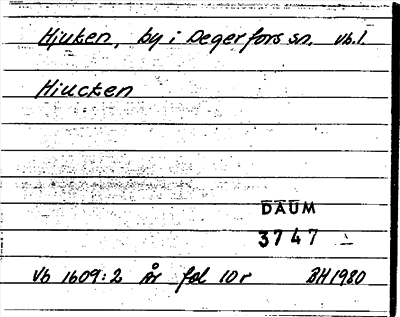 Hjuken, by i Degerfors sn. Vb.l.
Hiucken
DAUM
3747
Vb 1609:2 År fol 10r BH 1980